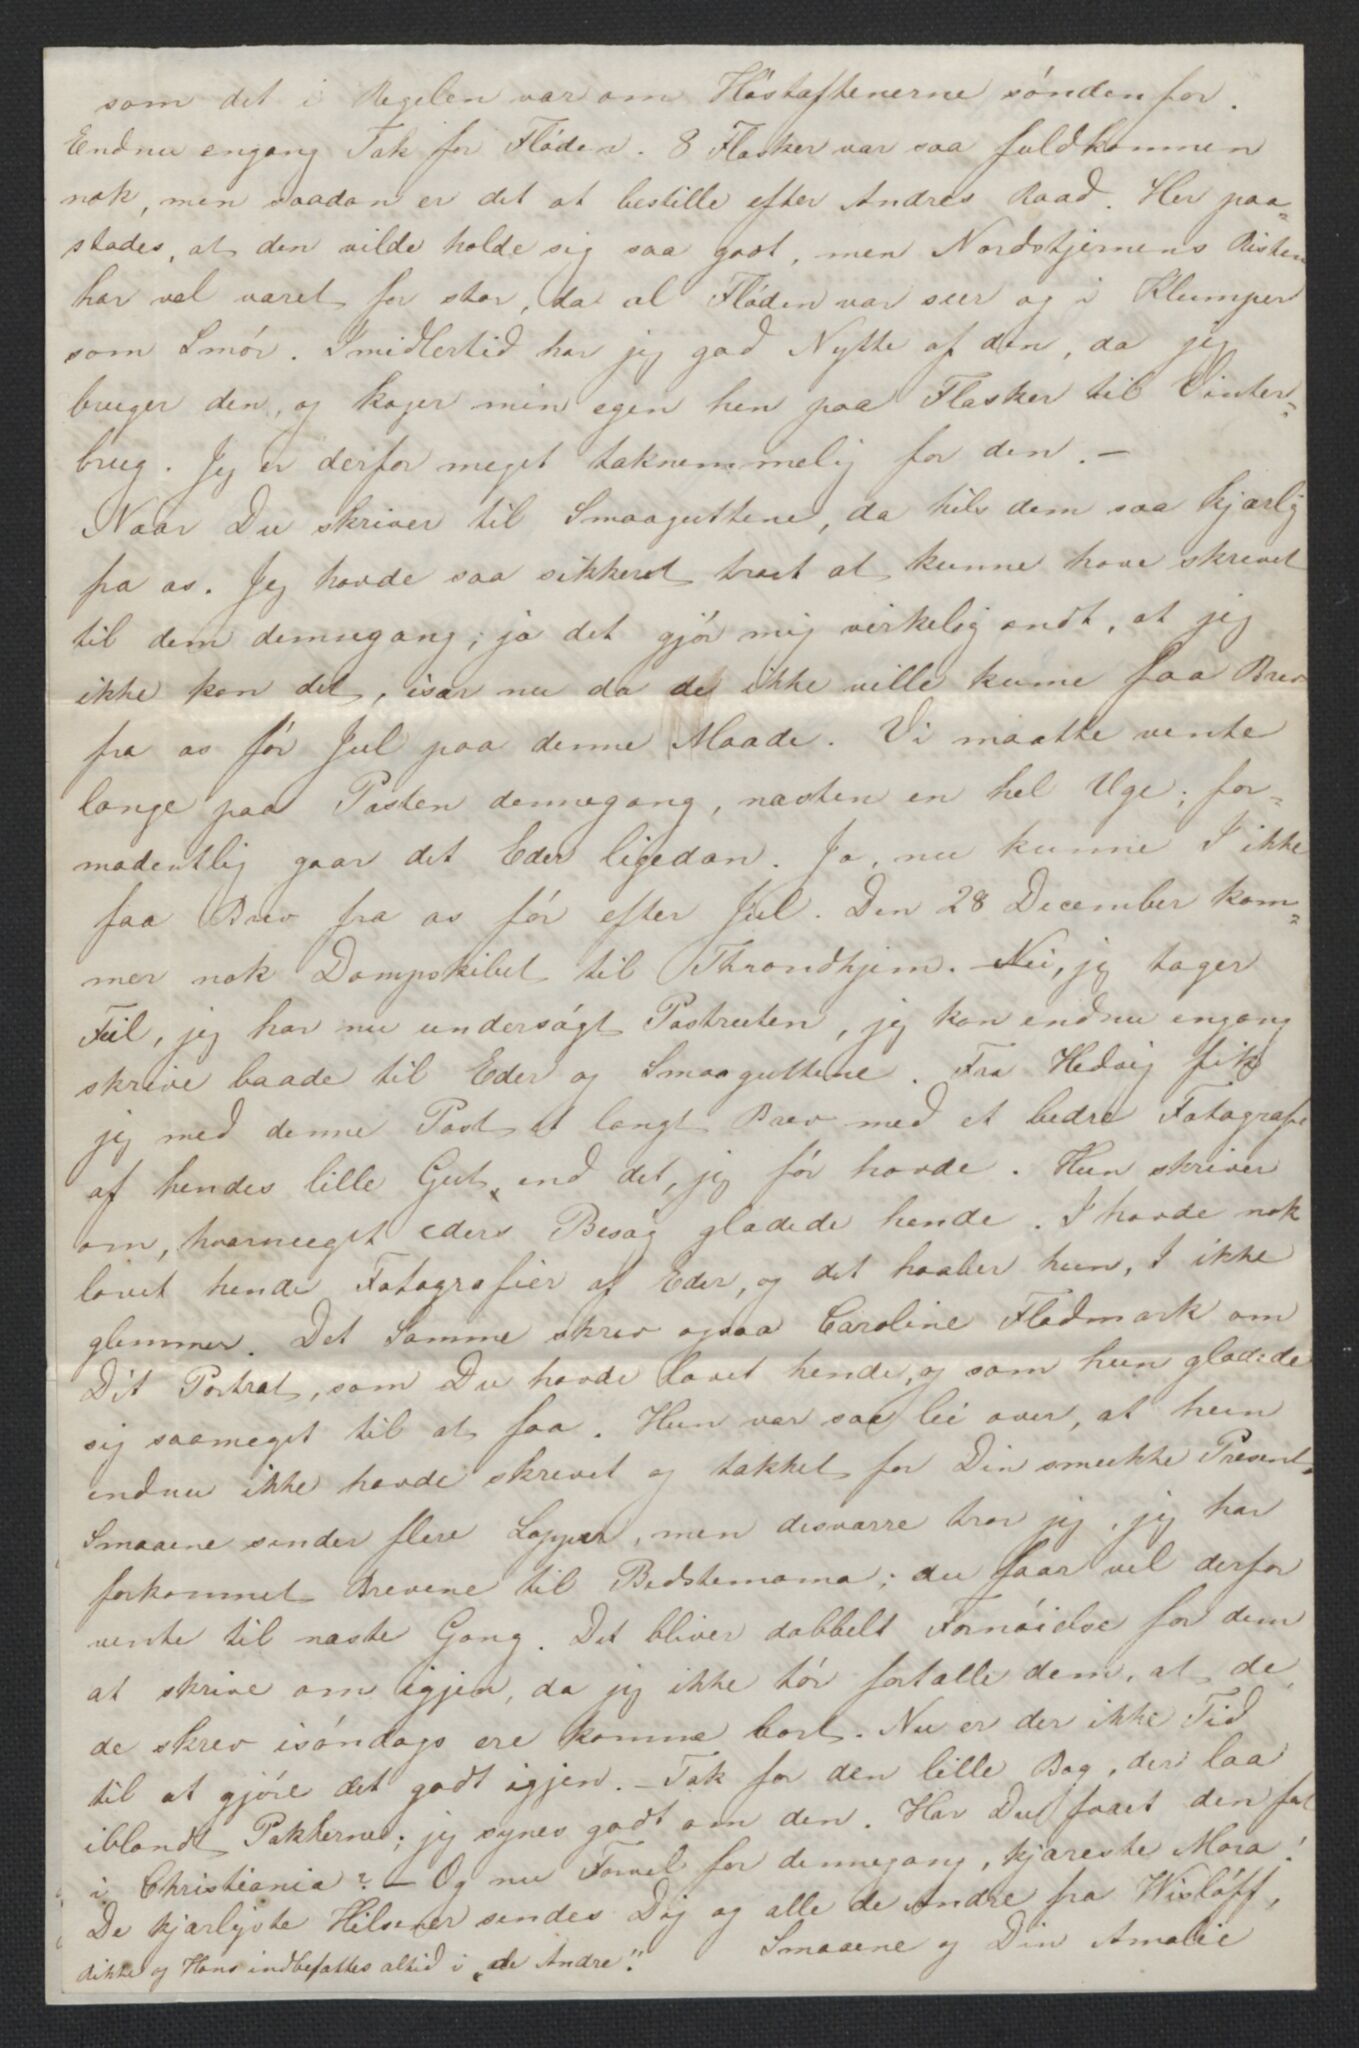 som det i Regelen var om Høstaftenerne søndenfor.
Endnu engang Tak for Fløden. 8 Flasker var saa fuldkommen
nok, men saadan er det at bestille efter Andres Raad. Her paa=
stodes, at den vilde holde sig saa godt, men Nordstjernens Risten
har vel været for stor, da al Fløden var suur og i Klumper
som Smør. Imidlertid har jeg god Nytte af den, da jeg
bruger den, og koger min egen hen paa Flasker til Vinter=
brug. Jeg er derfor meget taknemmelig for den. —
Naar Du skriver til Smaaguttene, da hils dem saa kjærlig
fra os. Jeg havde saa sikkert troet at kunne have skrevet
til dem dennegang; ja det gjør mig virkelig ondt, at jeg
ikke kan det, især nu da de ikke ville kunne faa Brev
fra os før Jul paa denne Maade. Vi maatte vente
længe paa Posten dennegang, næsten en hel Uge; for=
modentlig gaar det Eder ligedan. Ja, nu kunne I ikke
faa Brev fra os før efter Jul. Den 28 December kom=
mer nok Dampskibet til Throndhjem. — Nei, jeg tager
Feil, jeg har nu undersøgt Postruten, jeg kan endnu engang
skrive baade til Eder og Smaaguttene. Fra Hedvig fik
jeg med denne Post et langt Brev med et bedre Fotografi
af hendes lille Gut, end det, jeg før havde. Hun skriver
om, hvormeget eders Besøg glædede hende. I havde nok
lovet hende Fotografier af Eder, og det haaber hun, I ikke
glemmer. Det Samme skrev ogsaa Caroline Fladmark om
Dit Portræt, som Du havde lovet hende, og som hun glædede
sig saameget til at faa. Hun var saa lei over, at hun
endnu ikke havde skrevet og takket for Din smukke Present.
Smaaene sender flere Lapper, men desværre tror jeg, jeg har
forkommet Brevene til Bedstemama; du faar vel derfor
vente til næste Gang. Det bliver dobbelt Fornøielse for dem
at skrive om igjen, da jeg ikke tør fortælle dem, at de,
de skrev isøndags ere komne bort. Nu er der ikke Tid
til at gjøre det godt igjen. — Tak for den lille Bog, der laa
iblandt Pakkerne; jeg synes godt om den. Har Du faaet den fat
i Christiania? — Og nu Farvel for dennegang, kjæreste Mora!
De kjærligste Hilsener sendes Dig og alle de Andre fra Wisløff,
Smaaene og Din Amalie
Rikke og Hans indbefattes altid i „de Andre".